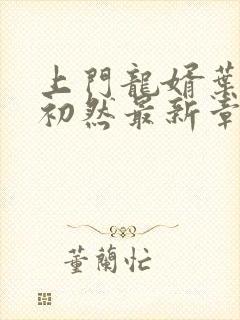 上門龍婿葉
初然最新章
董蘭忙